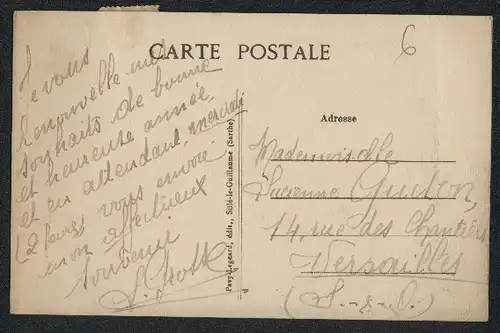 CARTE POSTALE
6
Je vous
renouvelle mes
souhaits de bonne
et heureuse année,
et en attendant, mercredi
(2 heures) vous envoie
mon affectueux
souvenir
Adresse
Mademoiselle
Lucienne
14, rue des Chantiers
Versailles
(S.-&-O.)
Pavy-Legeard, édit., Sillé-le-Guillaume (Sarthe)